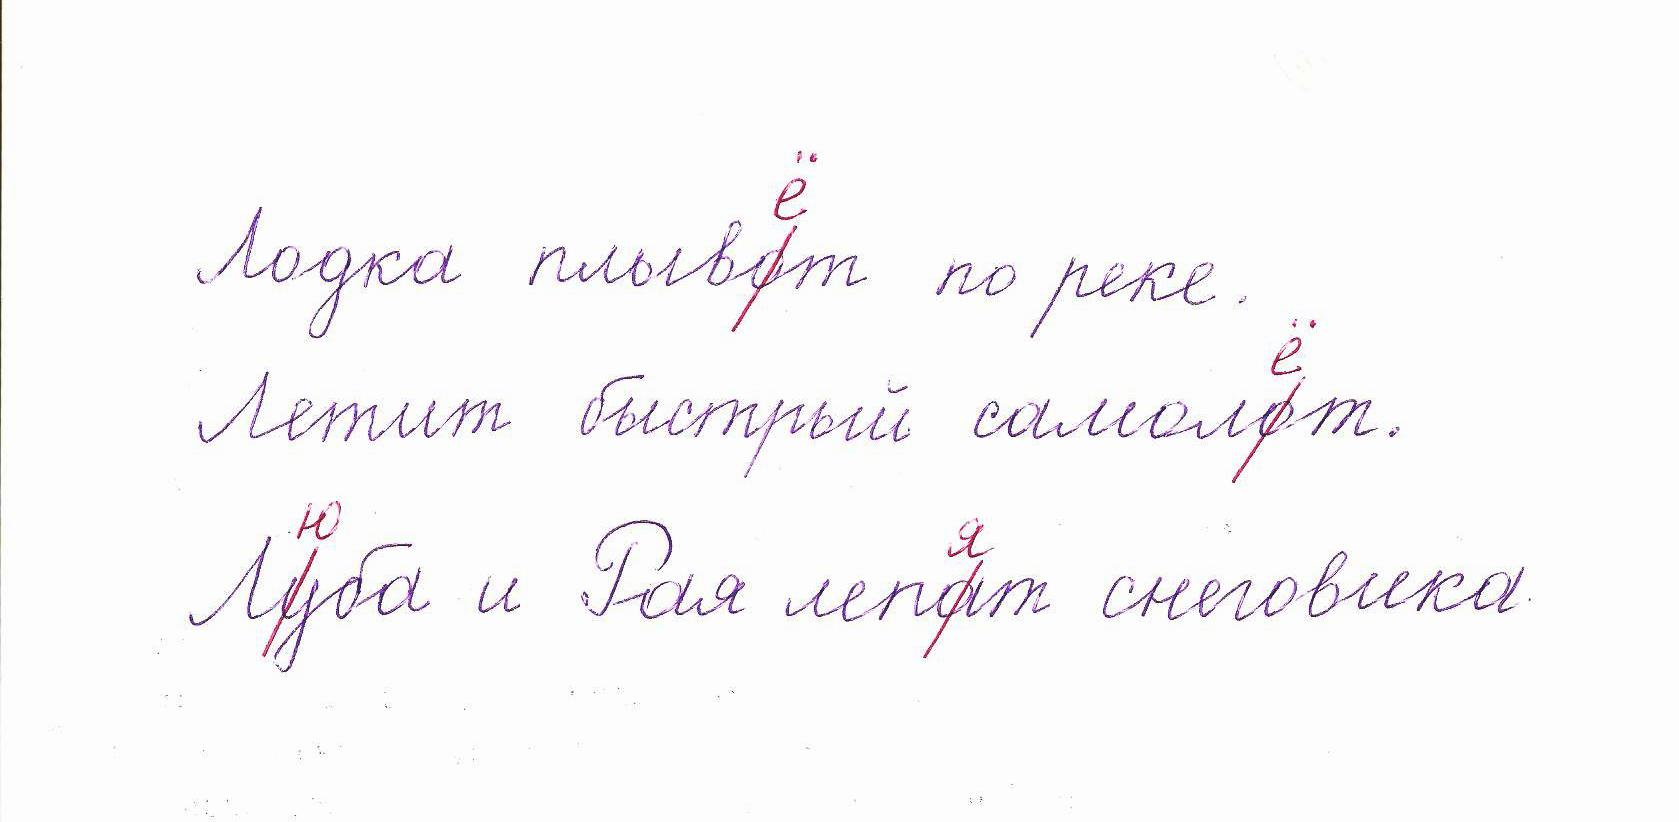 ё
Лодка плывот по реке.
ё
Летит быстрый самолот.
ю я
Луба и Рая лепат снеговика.